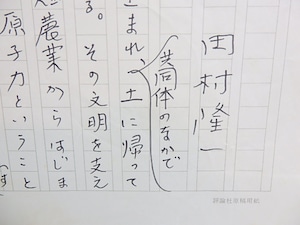 田村隆一
共同体のなかで
まれ、土に帰って
る。その文明を支え
農業からはじま
原子力ということ